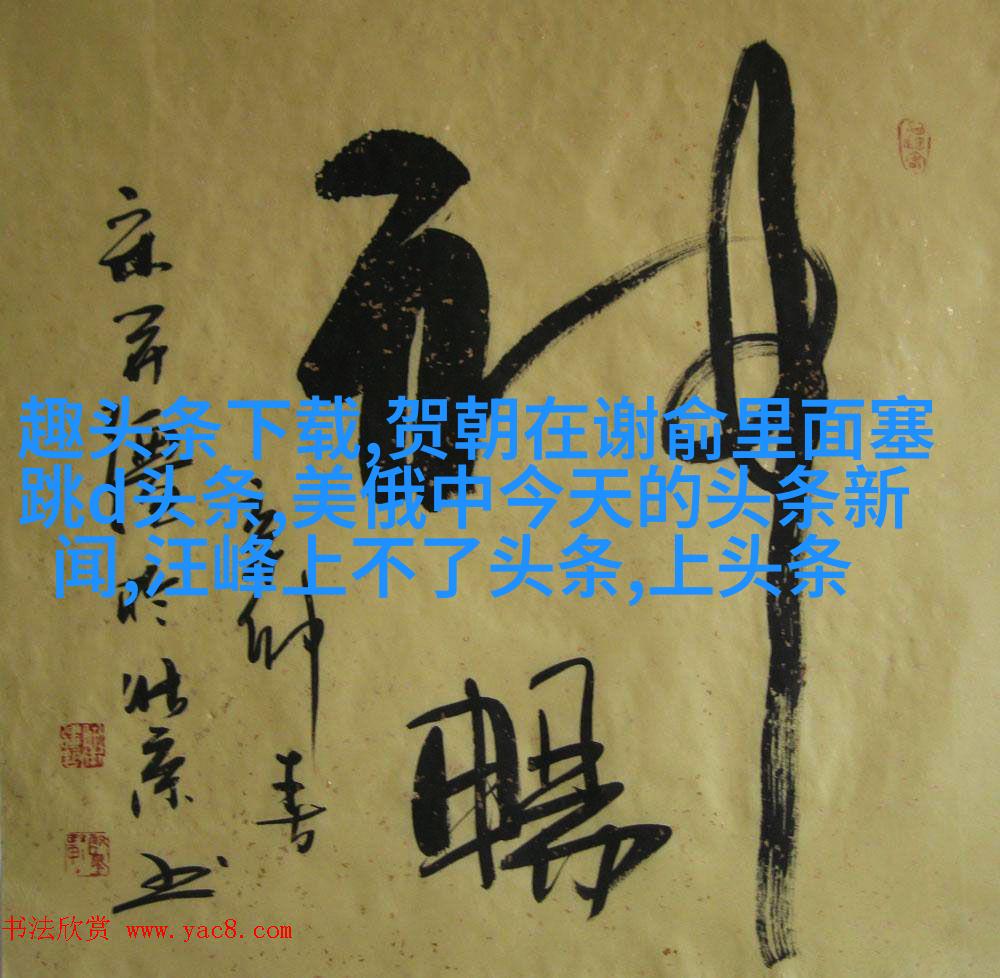 神暢
仲春
於北京书
趣头条下载,贺朝在谢俞里面塞
跳d头条,美俄中今天的头条新
闻,汪峰上不了头条,上头条
书法欣赏 www.yac8.com